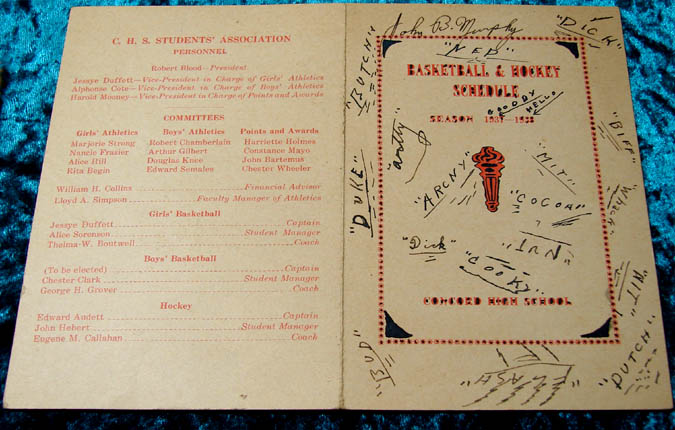 C. H. S. STUDENTS' ASSOCIATION
PERSONNEL
Robert Blood—President
Jessye Duffett—Vice-President in Charge of Girls' Athletics
Alphonse Cote—Vice-President in Charge of Boys' Athletics
Harold Mooney—Vice-President in Charge of Points and Awards
COMMITTEES
Girls' Athletics Boys' Athletics Points and Awards
Marjorie Strong Robert Chamberlain Harriette Holmes
Nancie Frazier Arthur Gilbert Constance Mayo
Alice Hill Douglas Knee John Bartemus
Rita Begin Edward Semales Chester Wheeler
William H. Collins Financial Advisor
Lloyd A. Simpson Faculty Manager of Athletics
Girls' Basketball
Jessye Duffett Captain
Alice Sorenson Student Manager
Thelma W. Boutwell Coach
Boys' Basketball
(To be elected) Captain
Chester Clark Student Manager
George H. Grover Coach
Hockey
Edward Audett Captain
John Hebert Student Manager
Eugene M. Callahan Coach
John B. Murphy
"DICK"
"NED"
"BUTCH"
BASKETBALL & HOCKEY
SCHEDULE
GOODBY
HELLO
SEASON 1937—1938
"BUFF"
"MIT"
"ARCHY"
"COCOA"
"DUKE"
"Dick"
"IRN"
"COOKY"
"NIT"
CONCORD HIGH SCHOOL
"DUTCH"
"BUD"
"FLASH"